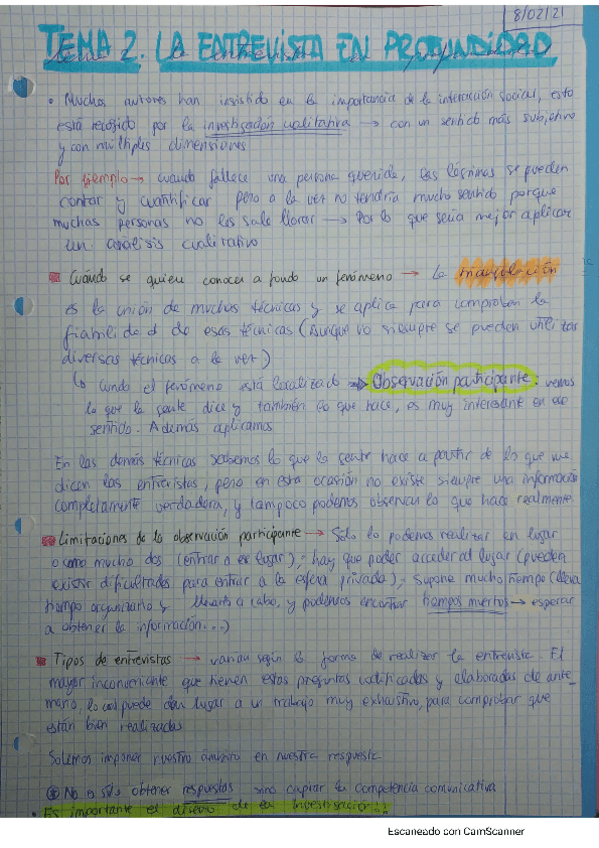 8/02/21
TEMA 2. LA ENTREVISTA EN PROFUNDIDAD
• Muchos autores han insistido en la importancia de la interacción social, esto
está recogido por la investigación cualitativa → con un sentido más subjetivo
y con múltiples dimensiones
Por ejemplo → cuando fallece una persona querida, las lágrimas se pueden
contar y cuantificar pero a la vez no tendría mucho sentido porque
muchas personas no les sale llorar → Por lo que sería mejor aplicar
un análisis cualitativo
Cuándo se quiere conocer a fondo un fenómeno → La triangulación
es la unión de muchas técnicas y se aplica para comprobar la
fiabilidad de esas técnicas (Aunque no siempre se pueden utilizar
diversas técnicas a la vez)
↳ cuando el fenómeno está localizado → Observación participante: vemos
lo que la gente dice y también lo que hace, es muy interesante en ese
sentido. Además aplicamos
En las demás técnicas sabemos lo que la gente hace a partir de lo que me
dicen las entrevistas, pero en esta ocasión no existe siempre una información
completamente verdadera, y tampoco podemos observar lo que hace realmente.
Limitaciones de la observación participante → Sólo lo podemos realizar en lugar
o como mucho dos (entrar a ese lugar),- hay que poder acceder al lugar (pueden
existir dificultades para entrar a la esfera privada),- Supone mucho tiempo (lleva
tiempo organizarlo y llevarlo a cabo, y podemos encontrar tiempos muertos → esperar
a obtener la información...)
Tipos de entrevistas → varían según la forma de realizar la entrevista. El
mayor inconveniente que tienen estas preguntas codificadas y elaboradas de ante-
mano, lo cual puede dar lugar a un trabajo muy exhaustivo, para comprobar que
están bien realizadas
Solemos imponer nuestro en nuestra respuesta
No sólo obtener respuestas sino captar la competencia comunicativa
• Es importante el diseño de la Investigación!!
Escaneado con CamScanner